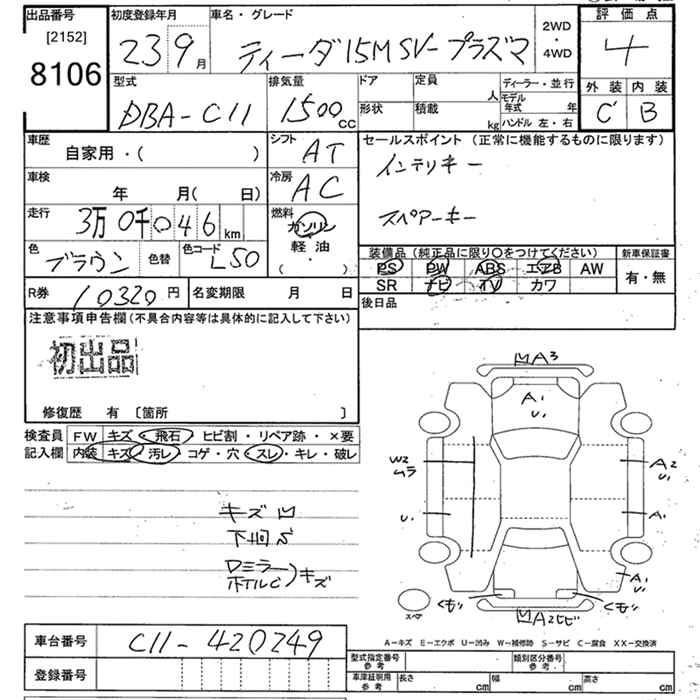 出品番号
[2152]
8106
初度登録年月
23 9月
車名・グレード
ティーダ 15M SV-プラズマ
2WD
・
4WD
評価点
4
外装 内装
C B
型式
DBA-C11
排気量
1500cc
ドア
形状
定員
人
積載
kg
ディーラー・並行
モデル年式 年
ハンドル 左・右
車歴
自家用・( )
シフト
AT
セールスポイント (正常に機能するものに限ります)
インテリキー
スペアーキー
車検
年 月( 日)
冷房
AC
走行
3万0千046km
燃料
ガソリン
軽油
( )
色
ブラウン
色替
色コード
L50
装備品 (純正品に限り○をつけてください)
PS PW ABS エアB AW
SR ナビ TV カワ
新車保証書
有・無
R券
10320円
名変期限 月 日
後日品
注意事項申告欄(不具合内容等は具体的に記入して下さい)
初出品
修復歴 有 〔箇所 〕
検査員
記入欄
FW キズ・飛石・ヒビ割・リペア跡・×要
内装 キズ・汚レ・コゲ・穴・スレ・キレ・破レ
キズ凹
下回S
Dミラー
ホイルC キズ
凹A3
A1
U1
W2
ムラ
U1
A2
U1
A1
A1
U1
くもり
くもり
凹A2ヒビ
スペア
A-キズ E-エクボ U-凹み W-補修跡 S-サビ C-腐食 XX-交換済
車台番号
C11-420249
登録番号
型式指定番号
参考
類別区分番号
参考
車庫証明用
参考
長さ cm
幅 cm
高さ cm